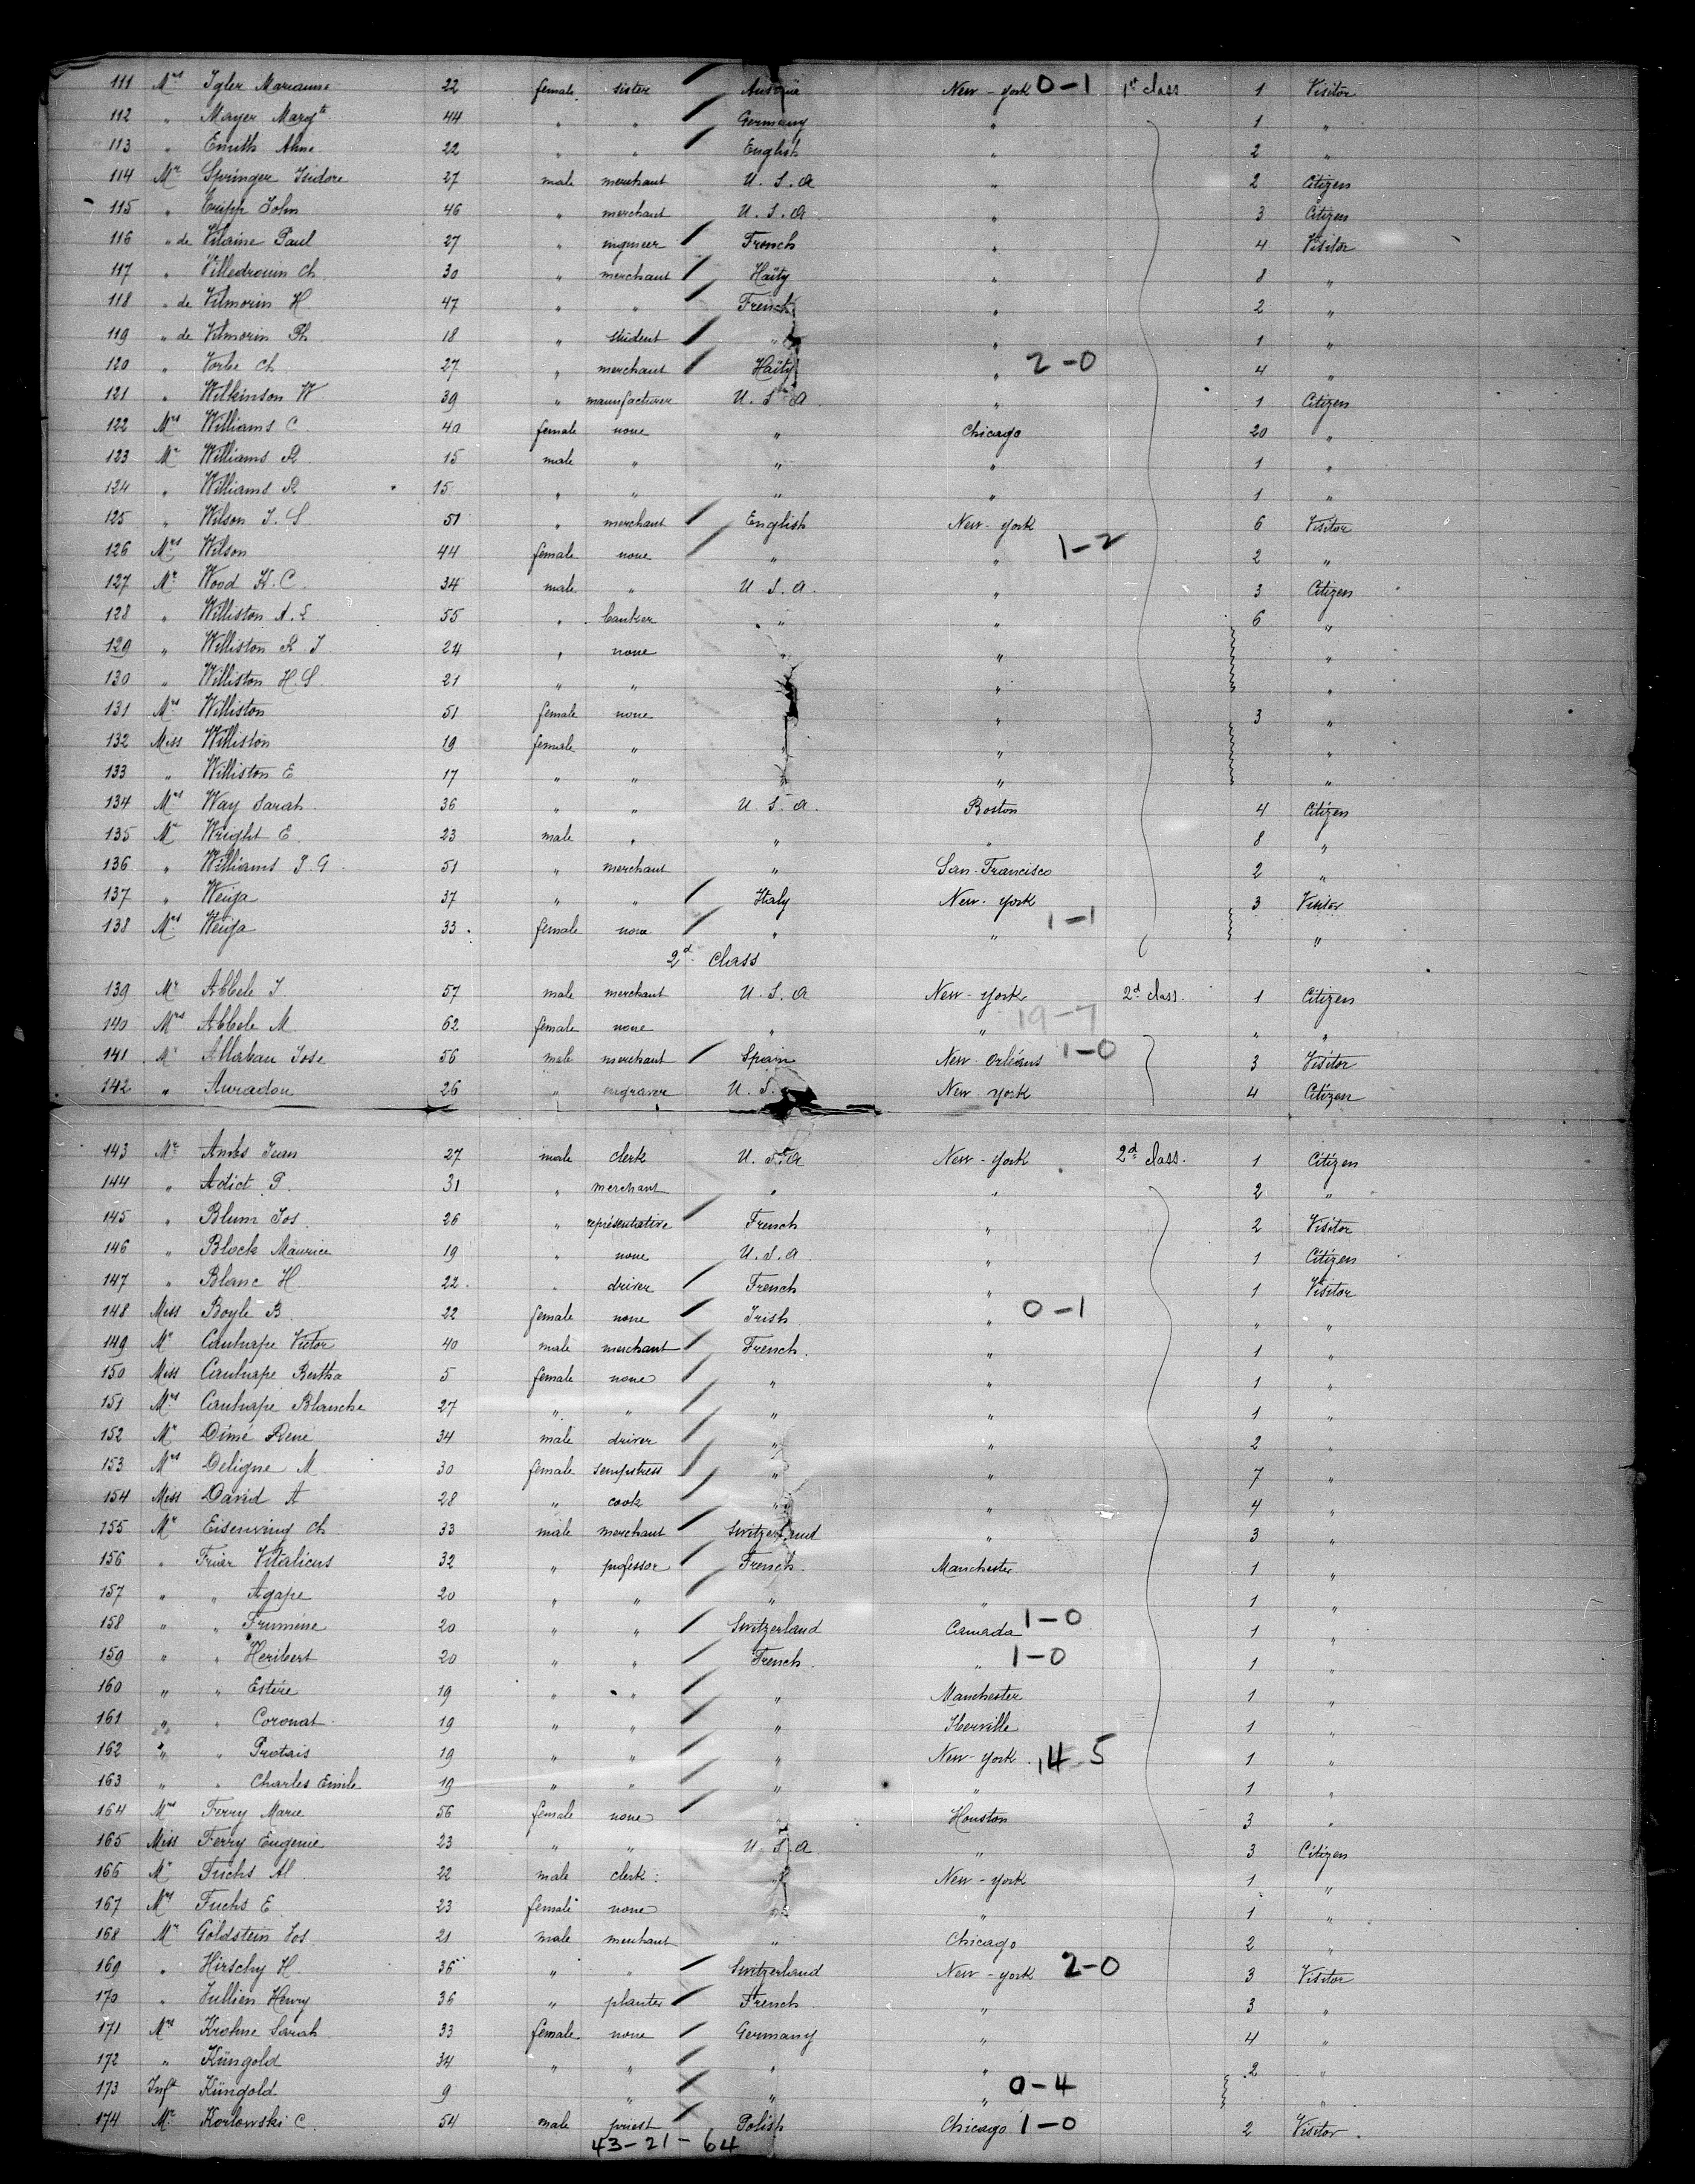 111 Mrs Igler Marianne 22 female sister Austria New-York 0-1 1st class 1 Visitor
112 " Mayer Margte 44 " " Germany " 1 "
113 " Emith Aline 22 " " English " 2 "
114 Mr Springer Isidore 27 male merchant U.S.A " 2 Citizen
115 " Cripp John 46 " merchant U.S.A " 3 Citizen
116 " de Vilaine Paul 27 " ingineer French " 4 Visitor
117 " Villedrouin Ch 30 " merchant Haïty " 8 "
118 " de Vilmorin H 47 " " French " 2 "
119 " de Vilmorin Ph 18 " student " " 1 "
120 " Vorbe Ch 27 " merchant Haïty " 2-0 4 "
121 " Wilkinson W 39 " manufacturer U.S.A " 1 Citizen
122 Mrs Williams C 40 female none " Chicago 20 "
123 Mr Williams R 15 male " " " 1 "
124 " Williams R 15 " " " " 1 "
125 " Wilson J.S 51 " merchant English New-York 6 Visitor
126 Mrs Wilson 44 female none " " 1-2 2 "
127 Mr Wood H.C. 34 male " U.S.A. " 3 Citizen
128 " Williston A.L 55 " banker " " 6 "
129 " Williston R J 24 " none " " "
130 " Williston H.S. 21 " " " "
131 Mrs Williston 51 female none " 3 "
132 Miss Williston 19 female " " " "
133 " Williston E 17 " " " " "
134 Mrs Way Sarah 36 " " U.S.A. Boston 4 Citizen
135 Mr Wright E. 23 male " " " 8 "
136 " Williams J.G. 51 " merchant " San-Francisco 2 "
137 " Weiga 37 " " Italy New-York 3 Visitor
138 Mrs Weiga 33 female none " " 1-1 "
2d Class
139 Mr Abbele J 57 male merchant U.S.A New-York 2d class. 1 Citizen
140 Mrs Abbele M. 62 female none " " 19-7 " "
141 Mr Allaban Jose 56 male merchant Spain New-Orléans 1-0 3 Visitor
142 " Auradou 26 " engraver U.S. New York 4 Citizen
143 Mr Andes Juan 27 male clerk U.S.A New-York 2d class. 1 Citizen
144 " Adict P. 31 " merchant " " 2 "
145 " Blum Jos. 26 " représentative French " 2 Visitor
146 " Block Maurice 19 " none U.S.A " 1 Citizen
147 " Blanc H 22 " driver French " 1 Visitor
148 Miss Boyle B 22 female none Irish " 0-1 " "
149 Mr Cauhape Victor 40 male merchant French " 1 "
150 Miss Cauhape Bertha 5 female none " " 1 "
151 Mrs Cauhape Blanche 27 " " " " 1 "
152 Mr Dimé Rene 34 male driver " " 2 "
153 Mrs Deligne M 30 female sempstress " " 7 "
154 Miss David A 28 " cook " " 4 "
155 Mr Eisenring Ch 33 male merchant Switzerland " 3 "
156 " Friar Vitalicus 32 " professor French Manchester 1 "
157 " " Agape 20 " " " " 1 "
158 " " Frumène 20 " " Switzerland Canada 1-0 1 "
159 " " Heribert 20 " " French " 1-0 1 "
160 " " Estère 19 " " " Manchester 1 "
161 " " Coronat 19 " " " Kerville 1 "
162 " " Protais 19 " " " New-York 14-5 1 "
163 " " Charles Emile 19 " " " " 1 "
164 Mrs Ferry Marie 56 female none " Houston 3 "
165 Miss Ferry Eugenie 23 " " U.S.A " 3 Citizen
166 Mr Fuchs Al 22 male clerk " New-York 1 "
167 Mrs Fuchs E 23 female none " " 1 "
168 Mr Goldstein Jos. 21 male merchant " Chicago 2 "
169 " Hirschy H 36 " " Switzerland New-York 2-0 3 Visitor
170 " Jullien Henry 36 " planter French " 3 "
171 Mrs Krohne Sarah 33 female none Germany " 4 "
172 " Küngold 34 " " " " 2 "
173 Inft Küngold 9 " " " 0-4 "
174 Mr Korlowski C. 54 male priest Polish Chicago 1-0 2 Visitor.
43-21-64